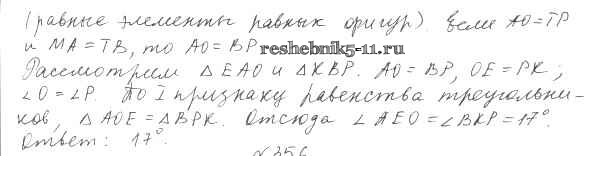 (равные элементы равных фигур). Если AO=TP
и MA=TB, то AO=BP
reshebnik5-11.ru
Рассмотрим △EAO и △KBP. AO=BP, OE=PK;
∠O=∠P. По I признаку равенства треугольни-
ков, △AOE=△BPK. Отсюда ∠AEO=∠BKP=17°.
Ответ: 17°.
№356